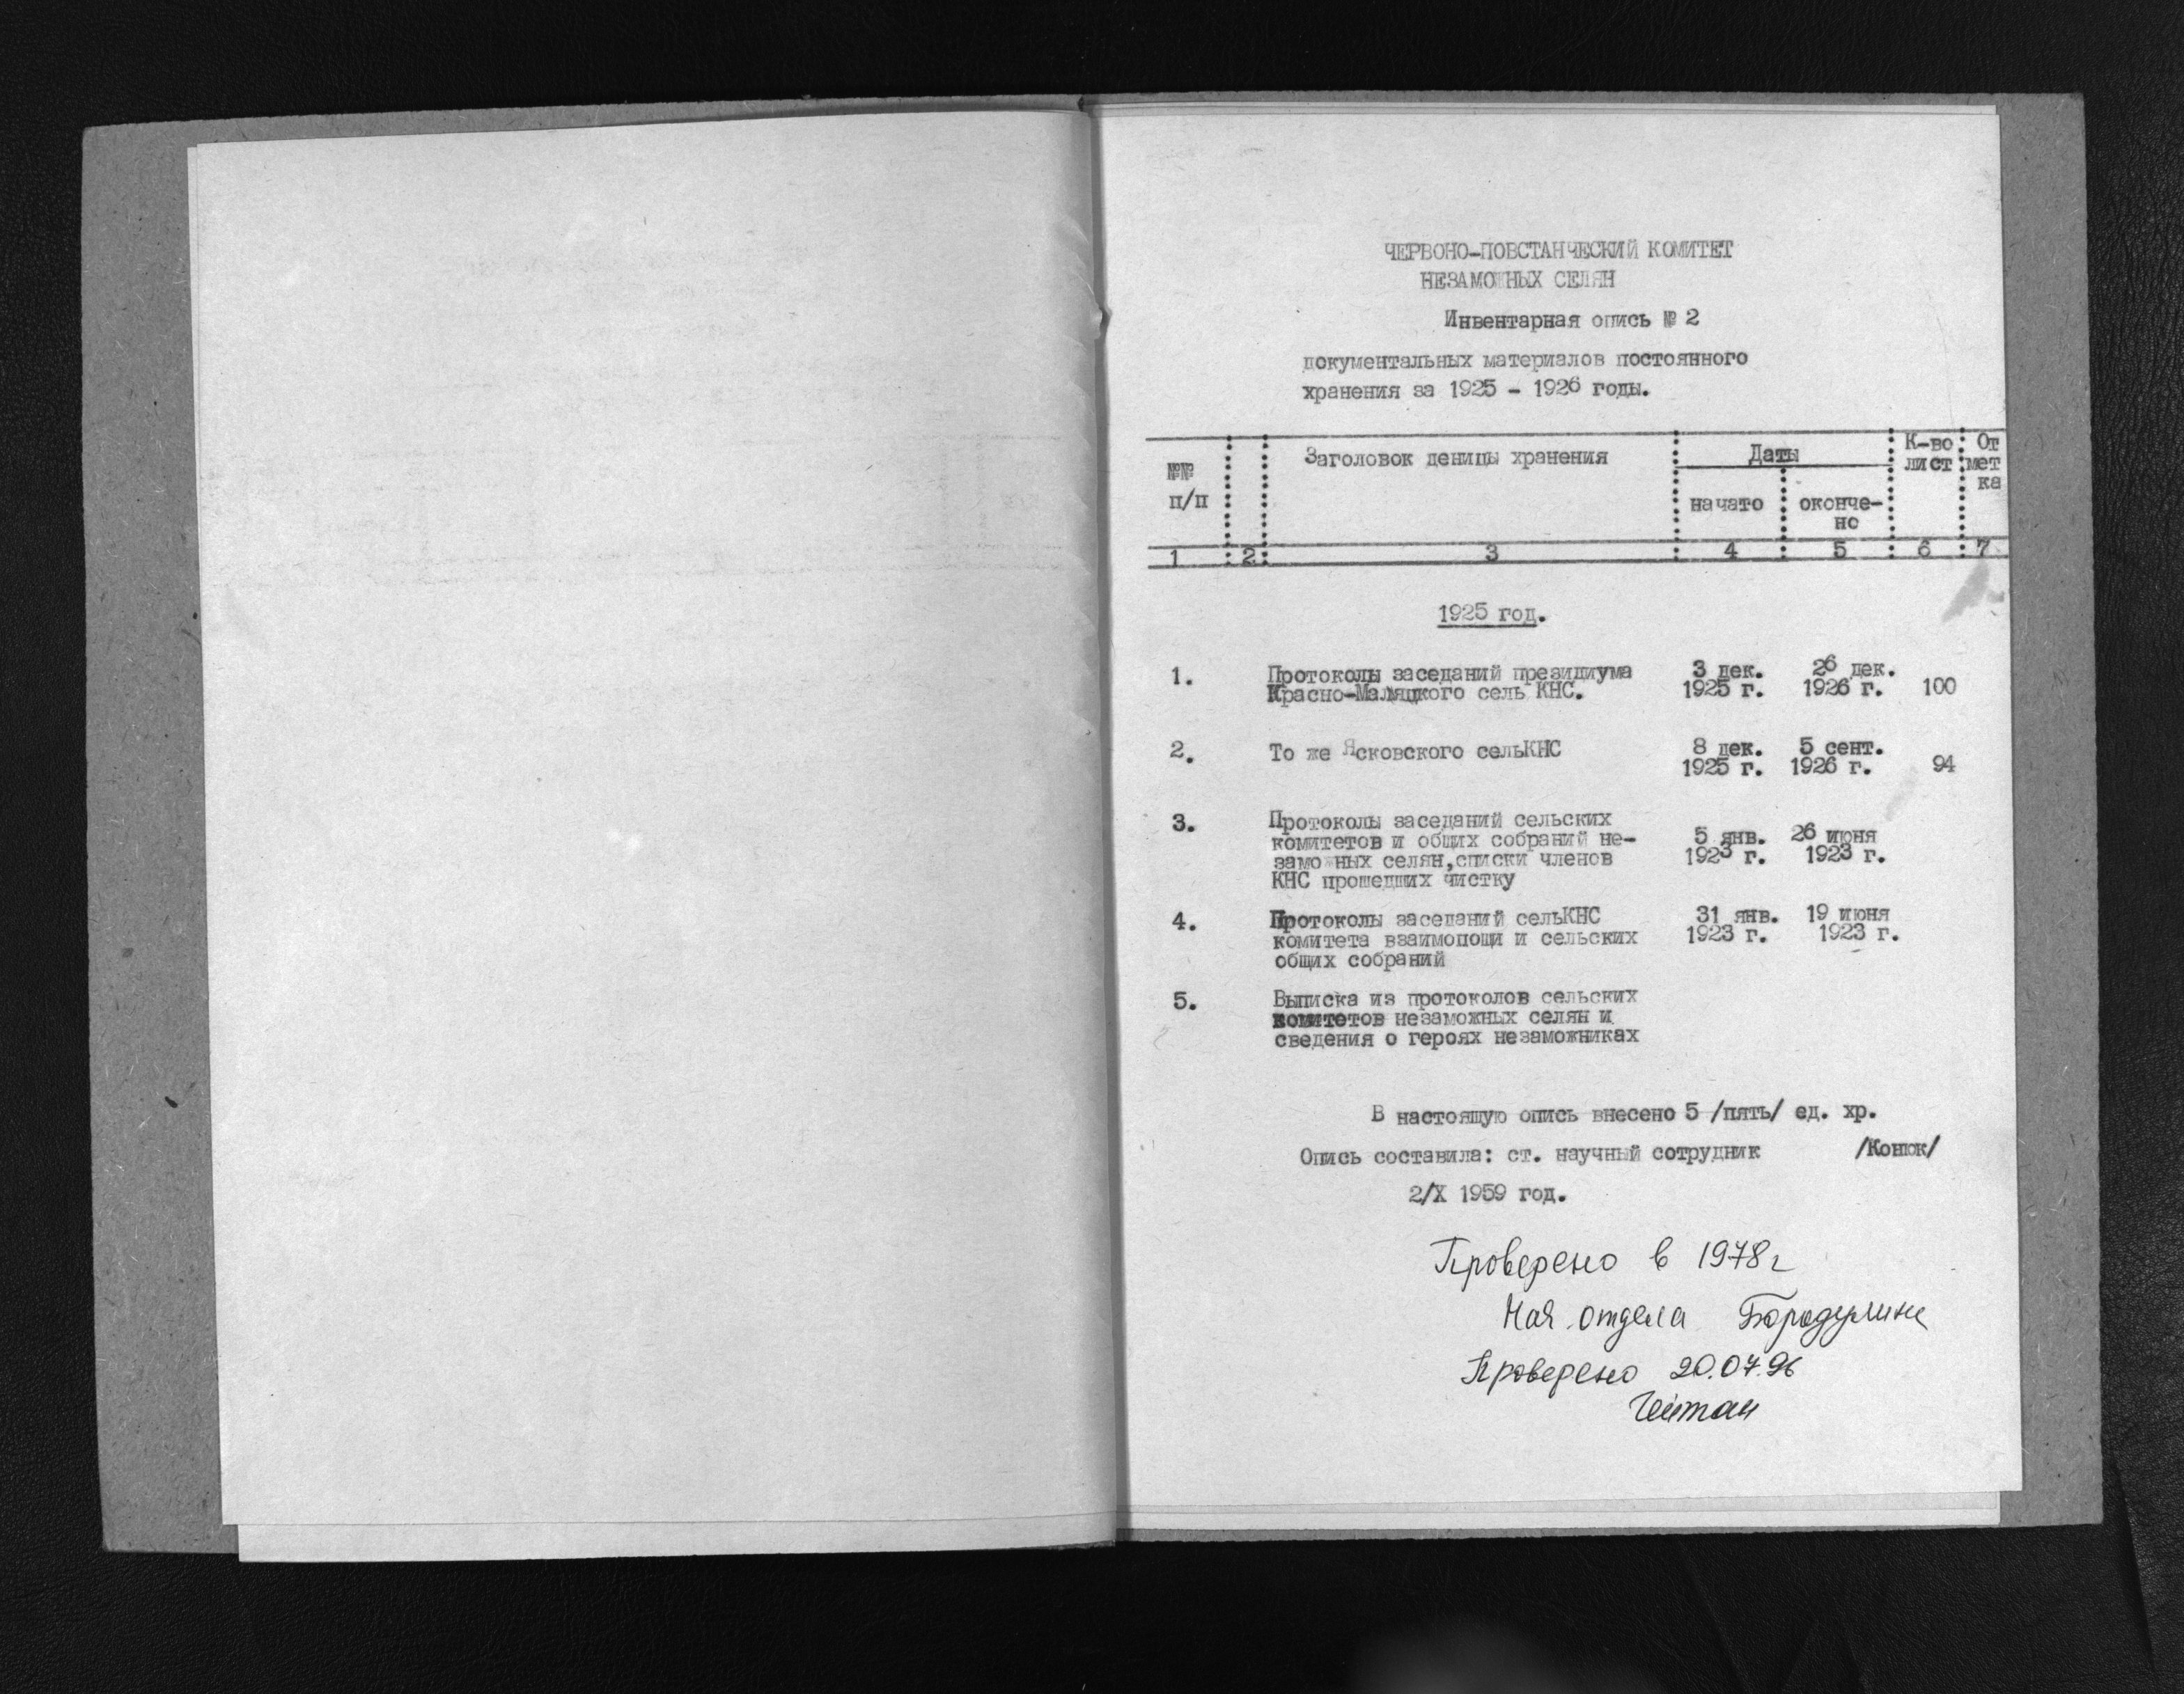 ЧЕРВОНО-ПОВСТАНЧЕСКИЙ КОМИТЕТ
НЕЗАМОЖНЫХ СЕЛЯН
Инвентарная опись № 2
документальных материалов постоянного
хранения за 1925 - 1926 годы.
№№ п/п
Заголовок деницы хранения
Даты
начато
оконче-
но
К-во
лист
От
мет
ка
1 2 3 4 5 6 7
1925 год.
1. Протоколы заседаний президиума 3 дек. 26 дек.
Красно-Маляцкого сель КНС. 1925 г. 1926 г. 100
2. То же Ясковского сельКНС 8 дек. 5 сент.
1925 г. 1926 г. 94
3. Протоколы заседаний сельских
комитетов и общих собраний не- 5 янв. 26 июня
заможных селян,списки членов 1923 г. 1923 г.
КНС прошедших чистку
4. Протоколы заседаний сельКНС 31 янв. 19 июня
комитета взаимопощи и сельских 1923 г. 1923 г.
общих собраний
5. Выписка из протоколов сельских
комитетов незаможных селян и
сведения о героях незаможниках
В настоящую опись внесено 5 /пять/ ед. хр.
Опись составила: ст. научный сотрудник /Конюк/
2/X 1959 год.
Проверено в 1978г
Нач. отдела
Проверено 20.07.96